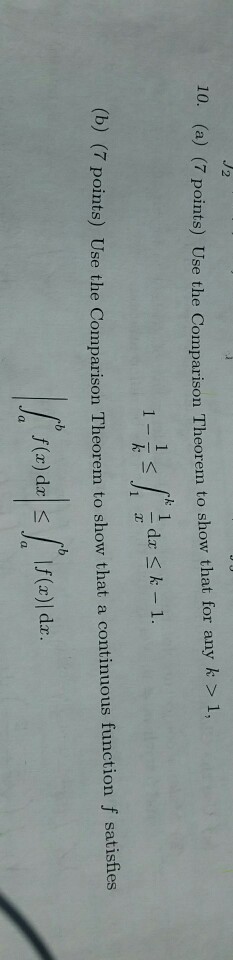 10. (a) (7 points) Use the Comparison Theorem to show that for any k > 1,
1 − 1/k ≤ ∫₁ᵏ 1/x dx ≤ k − 1.
(b) (7 points) Use the Comparison Theorem to show that a continuous function f satisfies
|∫ₐᵇ f(x) dx| ≤ ∫ₐᵇ |f(x)| dx.